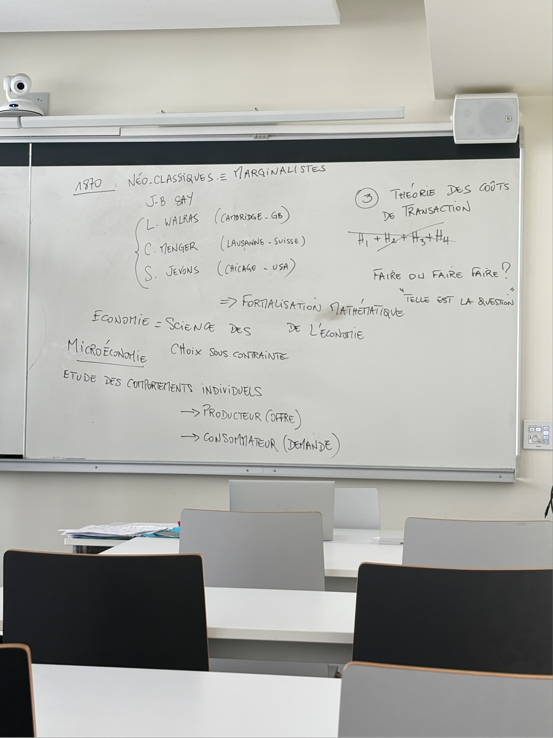 1870 : NÉO-CLASSIQUES = MARGINALISTES
J-B SAY
L. WALRAS (CAMBRIDGE - GB)
C. MENGER (LAUSANNE - SUISSE)
S. JEVONS (CHICAGO - USA)
=> FORMALISATION MATHÉMATIQUE
DE L'ÉCONOMIE
ECONOMIE = SCIENCE DES
CHOIX SOUS CONTRAINTE
MICROÉCONOMIE
ETUDE DES COMPORTEMENTS INDIVIDUELS
→ PRODUCTEUR (OFFRE)
→ CONSOMMATEUR (DEMANDE)
3 THÉORIE DES COÛTS
DE TRANSACTION
H1 + H2 + H3 + H4
FAIRE OU FAIRE FAIRE ?
"TELLE EST LA QUESTION"